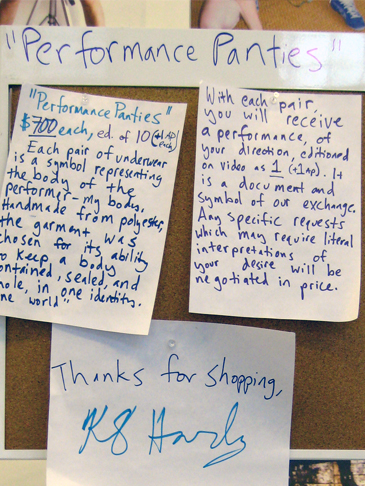 "Performance Panties"
"Performance Panties"
$700 each, ed. of 10 (+1 AP each)
Each pair of underwear
is a symbol representing
the body of the
performer - my body.
Handmade from polyester,
the garment was
chosen for its ability
to keep a body
contained, sealed, and
whole, in one identity.
one world"
With each pair,
you will receive
a performance, of
your direction, editioned
on video as 1 (+1 ap). It
is a document and
symbol of our exchange.
Any specific requests
which may require literal
interpretations of
your desire will be
negotiated in price.
Thanks for shopping,
K8 Hardy